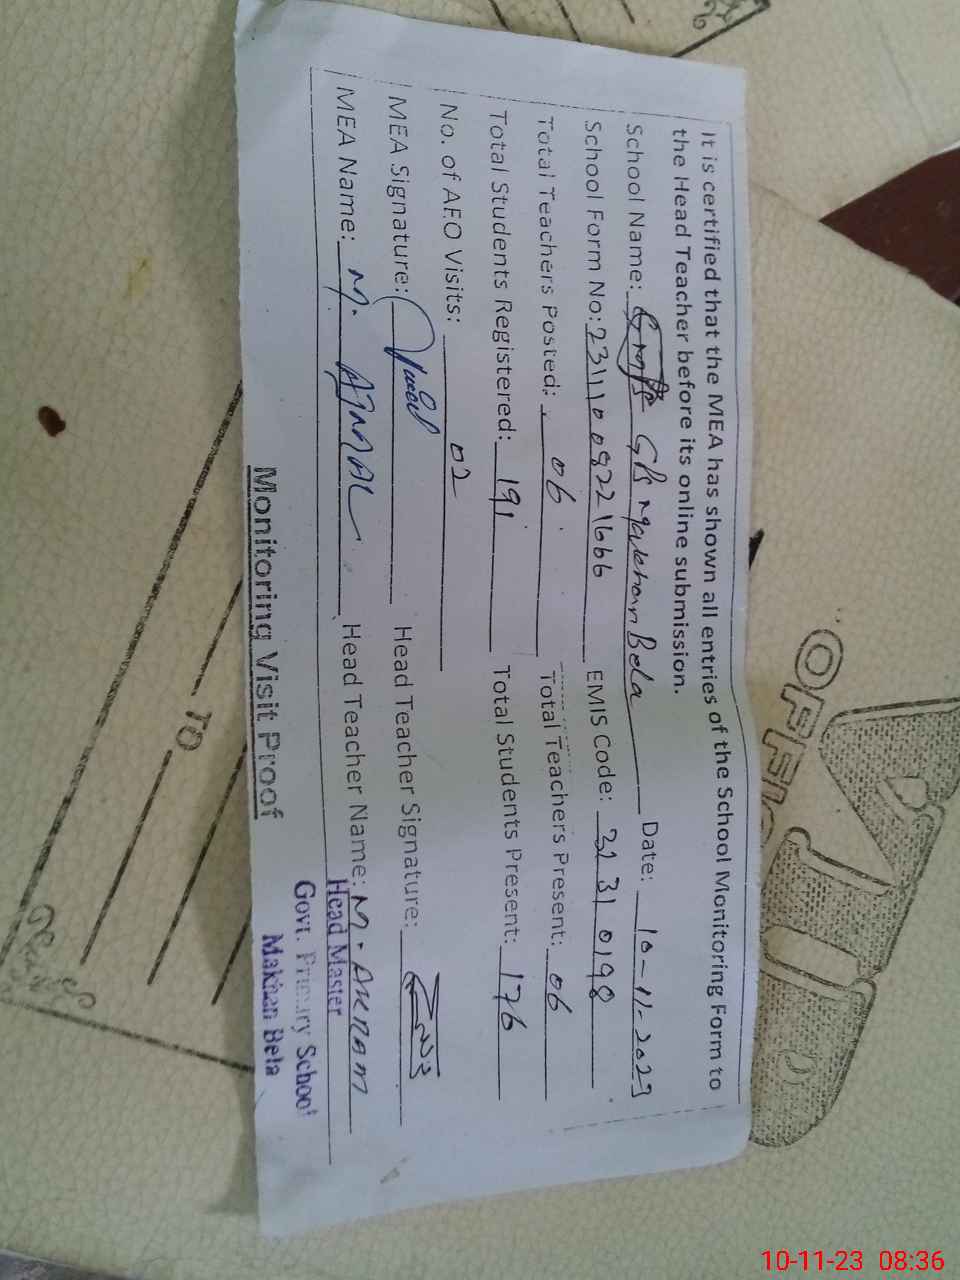 It is certified that the MEA has shown all entries of the School Monitoring Form to
the Head Teacher before its online submission.
School Name: GPS Makhan Bela Date: 10-11-2023
School Form No: 23111009221666 EMIS Code: 31310198
Total Teachers Posted: 06 Total Teachers Present: 06
Total Students Registered: 191 Total Students Present: 176
No. of AEO Visits: 02
MEA Signature: Head Teacher Signature:
MEA Name: M. AJMAL Head Teacher Name: M. AKRAM
Head Master
Govt. Primary School
Makhan Bela
Monitoring Visit Proof
TO
10-11-23 08:36